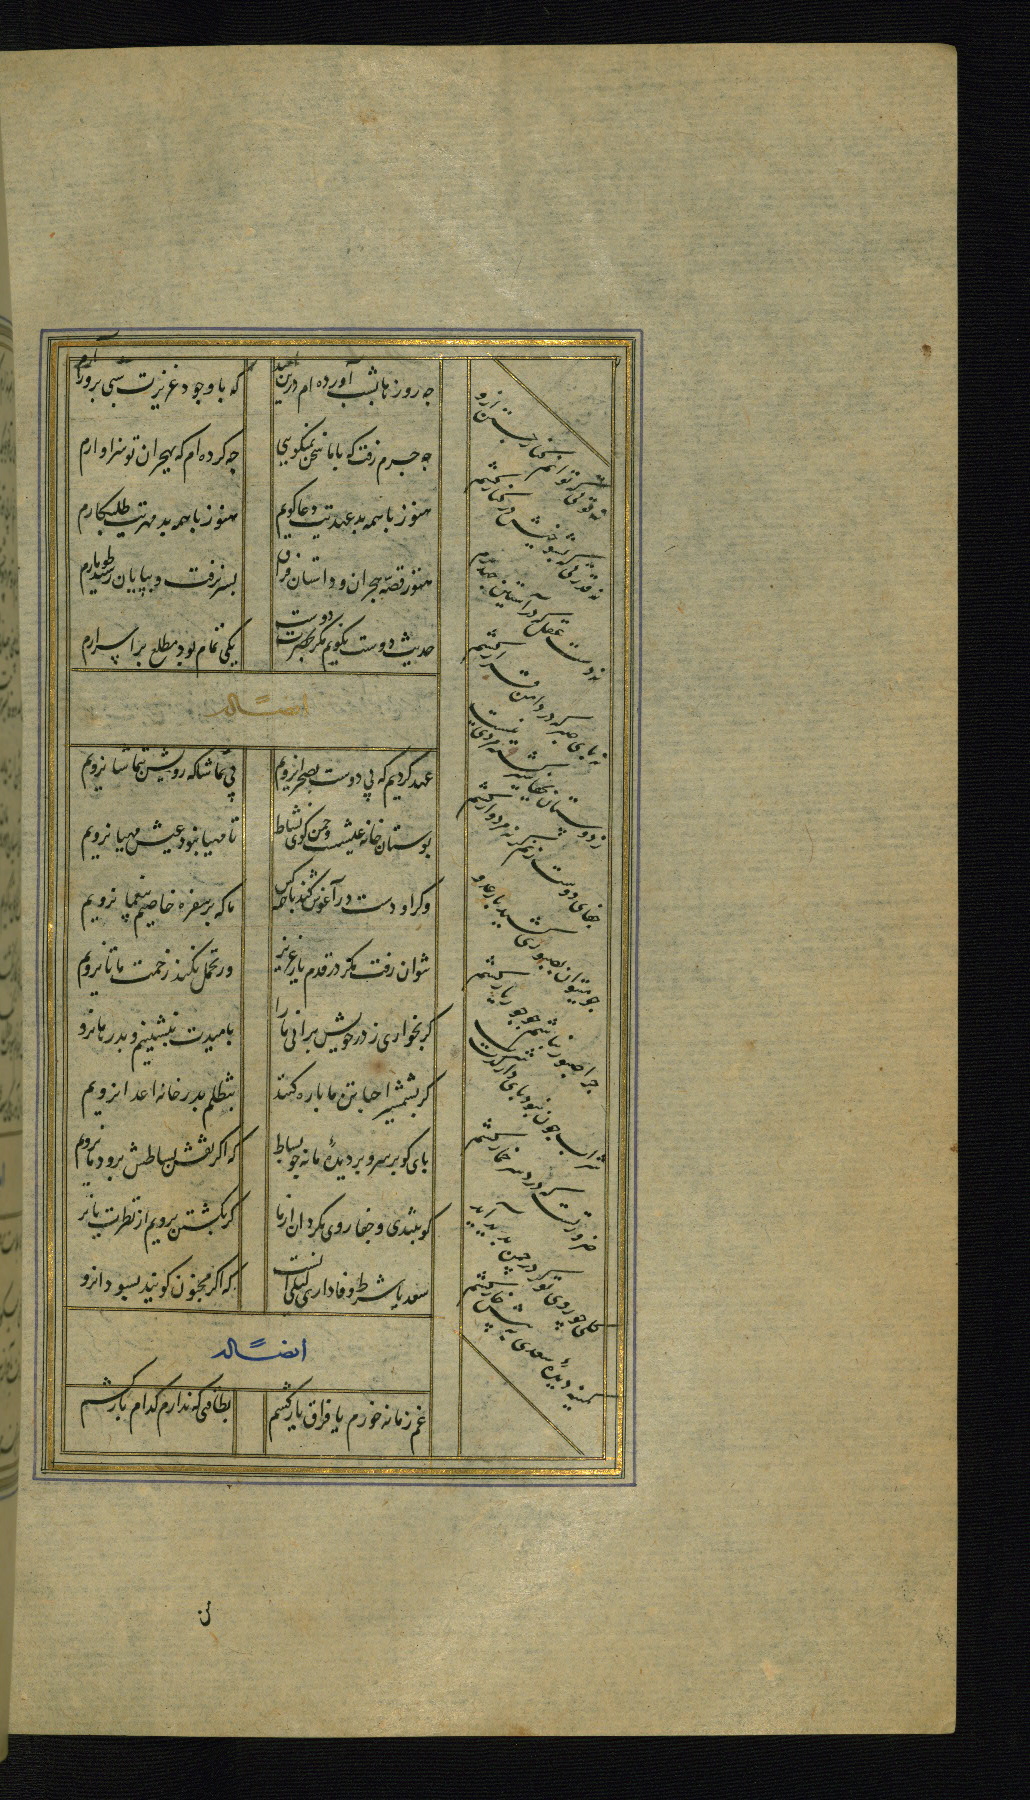 چه روزها بشب آورده ام درین امید
که با وجود عزیزت شبی بروز آرم
چه جرم رفت که با ما سخن نمیگویی
چه کرده ام که بهجران تو سزاوارم
هنوز با همه بد عهدیت دعا گویم
هنوز با همه بد مهریت طلبکارم
هنوز قصه هجران و داستان فراق
بسر نرفت و بپایان رسید طومارم
حدیث دوست نگویم مگر بحضرت دوست
یکی تمام بود مطلع بر اسرارم
ایضاً له
عهد کردیم که بی دوست بصحرا نرویم
بی تماشاگه رویش بتماشا نرویم
بوستان خانه عیشست و چمن کوی نشاط
تا مهیا نبود عیش مهیا نرویم
وگر او دست در آغوش کند با همه کس
ما که بر سفره خاصیم بیغما نرویم
نتوان رفت مگر در قدم یار عزیز
ور تحمل نکند زحمت ما تا نرویم
گر بخواری ز در خویش برانی ما را
بامیدت بنشینیم و بدرها نرو
گر بشمشیر احبا تن ما پاره کنند
بتظلم بدر خانه اعدا نرویم
پای گو بر سر و بر دیده ما نه چو بساط
که اگر نقش بساطش برود ما نرویم
گو بتندی و جفا روی مگردان از ما
گر بکشتن برویم از نظرت یا نر
سعدیا شرط وفاداری لیلی آنست
که اگر مجنون گویند بسودا نرو
ایضاً له
غم زمانه خورم یا فراق یار کشم
بطاقتی که ندارم کدام بار کشم
نه قوتی که توانم کناره جستن ازو
نه قدرتی که بشوخیش در کنار کشم
نه دست عقل که در آستین
نه پای صبر که در دامن قرار کشم
ز دوستان بجفا سیر گشته مردی نیست
جفای دوست زنم گر نه مردوار کشم
چو میتوان بصبوری کشید بار عدو
چرا صبور نباشم چو جور یار کشم
شراب
ضرورتست که درد سر خمار کشم
گلی چو روی تو گر در چمن پدید آید
کمینه دیده سعدی پیش خار کشم